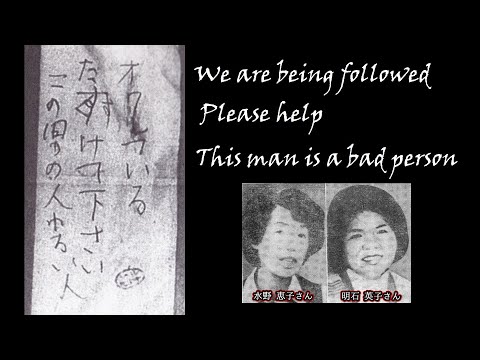 オワれている
たすけて下さい
この男の人わるい人
We are being followed
Please help
This man is a bad person
水野 恵子さん
明石 英子さん